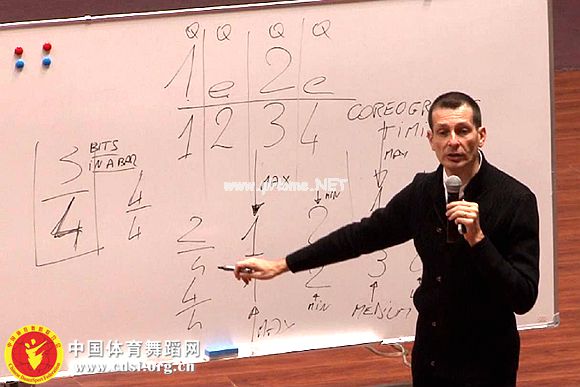 Q Q Q Q
1 e 2 e
1 2 3 4
COREOGRA
TIMI
BITS
IN A BAR
3/4
4/4
MAX
MAX
MIN
www.prtme.NET
2/4 1 2
4/4
3
MAX
MIN
MEDIUM
中国体育舞蹈网
www.cdsf.org.cn